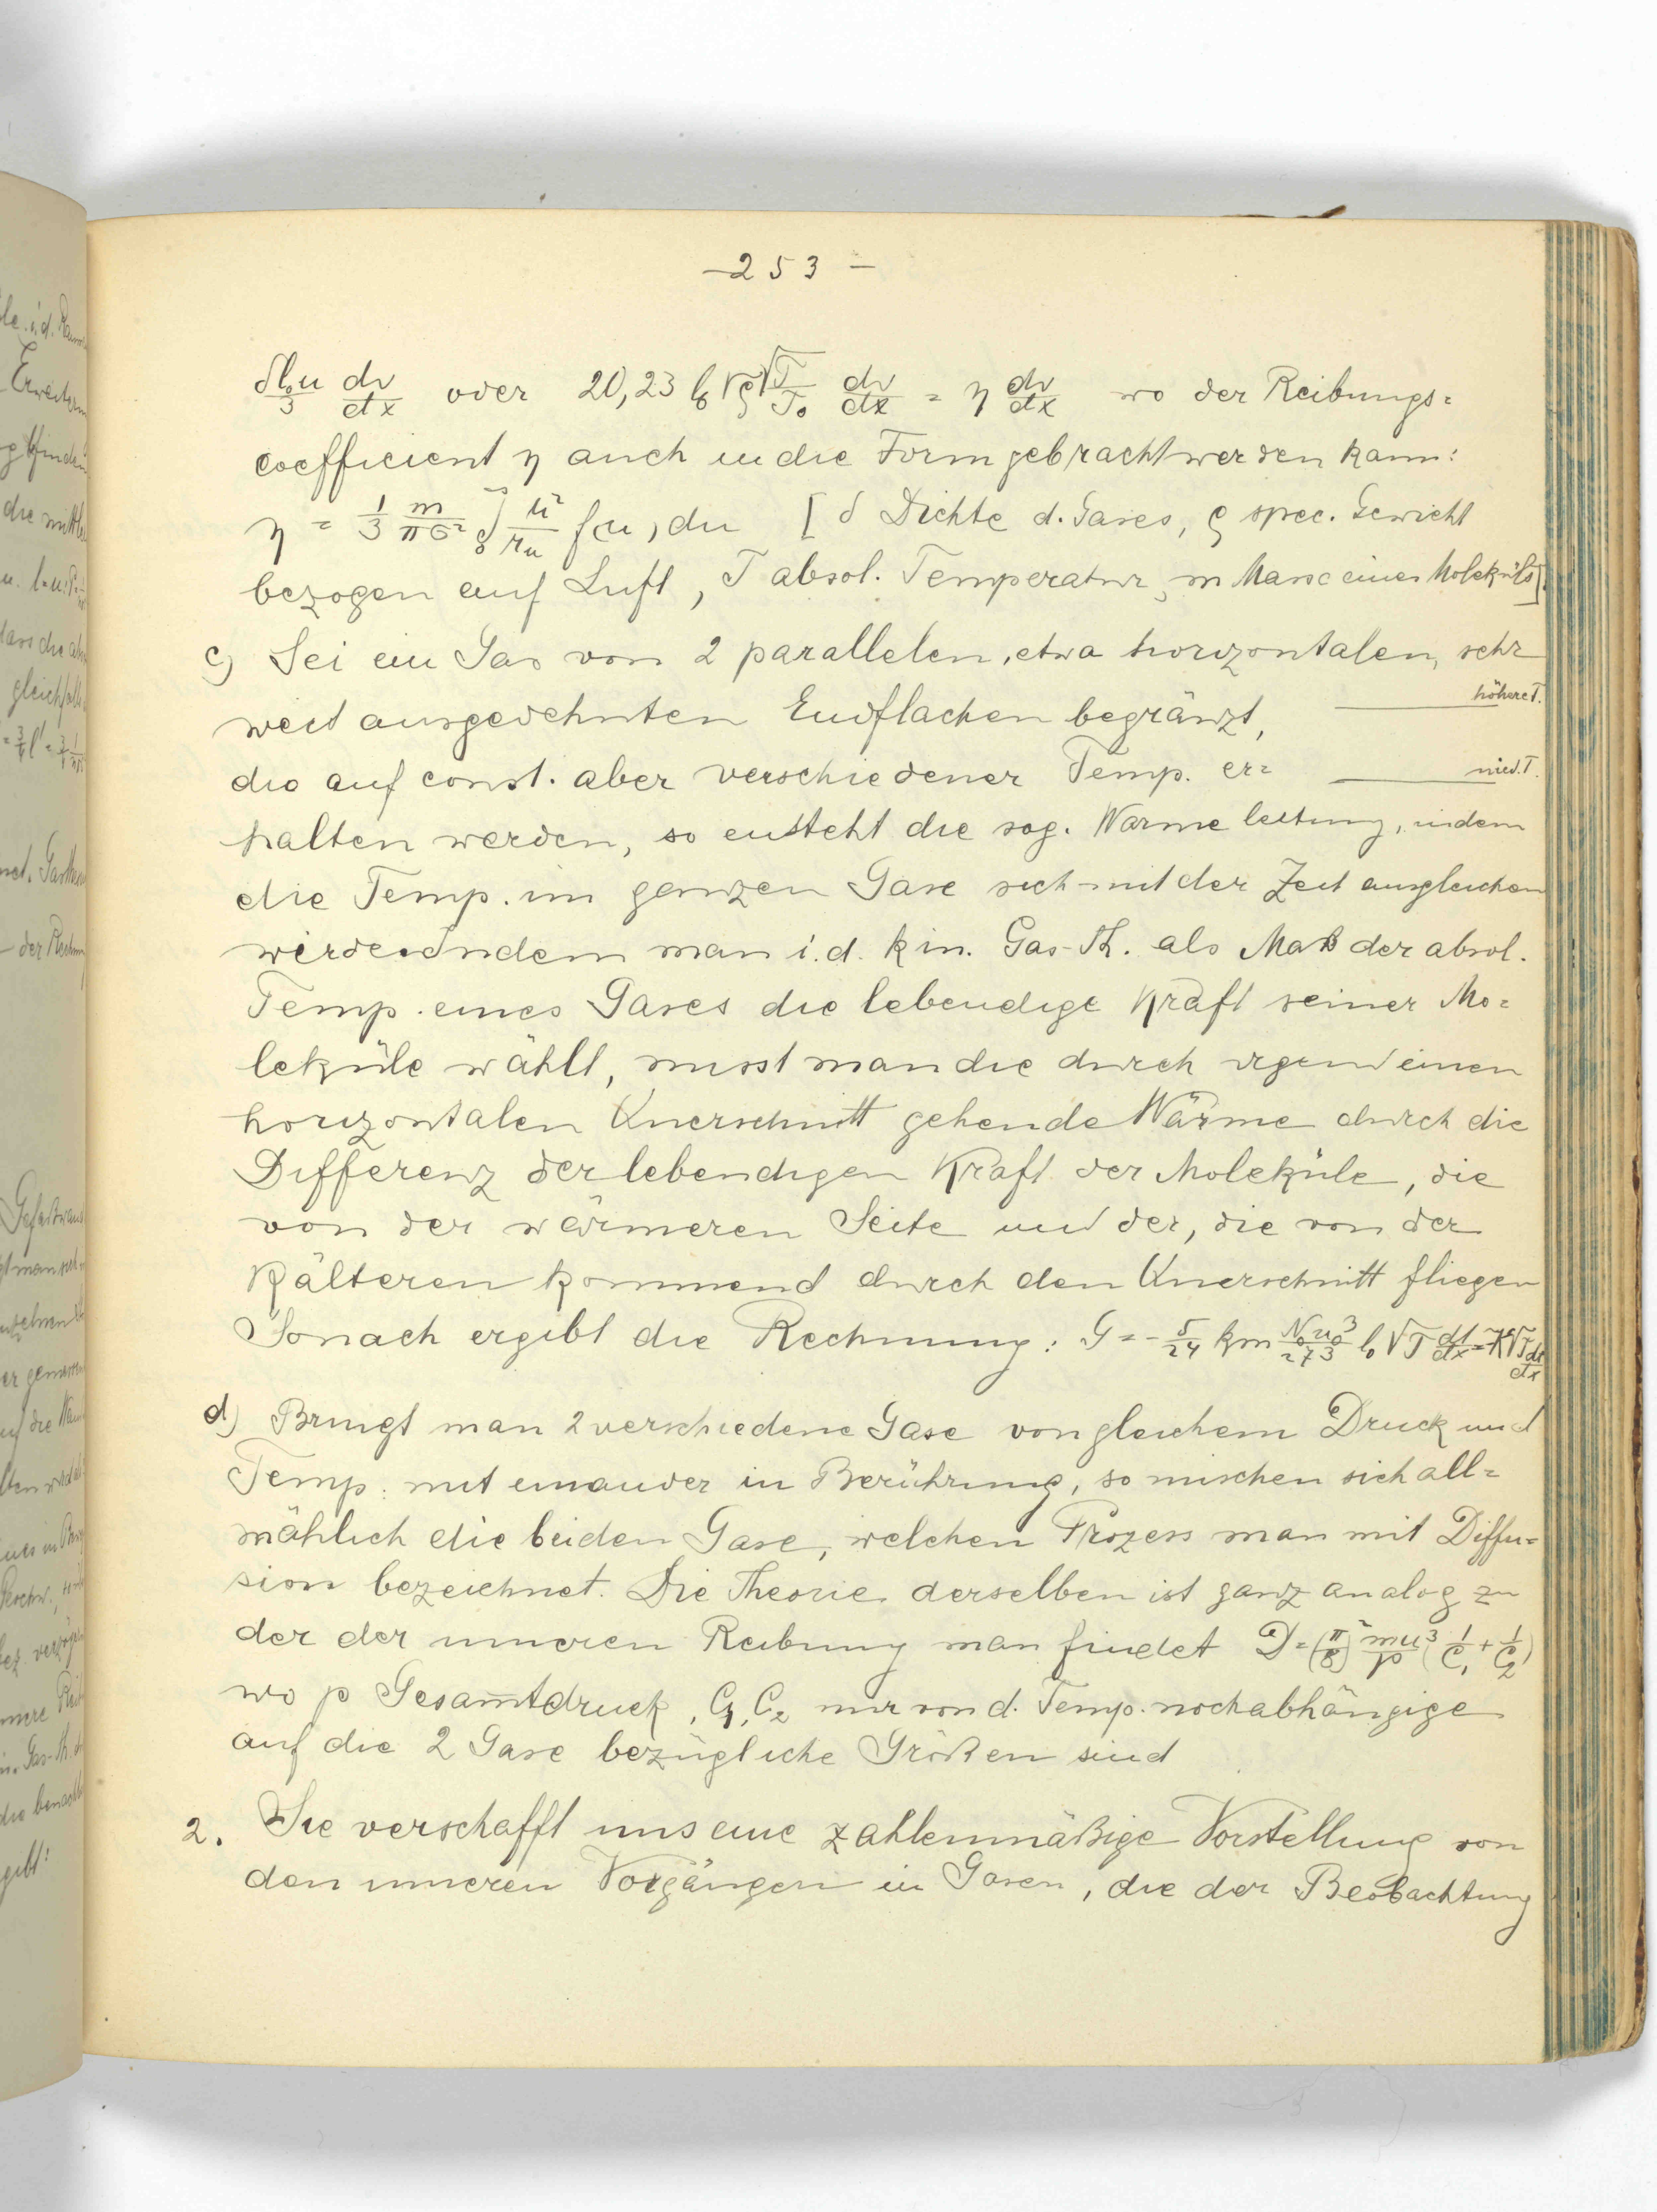 — 253 —
δl₀u/3 dv/dx oder 20,23 l₀ √ρ √T/T₀ dv/dx = η dv/dx wo der Reibungs=
coefficient η auch in die Form gebracht werden kann:
η = 1/3 m/πσ² ∫₀^∞ u²/r_u f(u) du [δ Dichte d. Gases, ρ spec. Gewicht
bezogen auf Luft, T absol. Temperatur, m Masse eines Moleküls].
c) Sei ein Gas von 2 parallelen, etwa horizontalen, sehr
weit ausgedehnten Endflächen begränzt,
höhere T.
die auf const. aber verschiedener Temp. er=
nied. T.
halten werden, so entsteht die sog. Wärmeleitung, indem
die Temp. im ganzen Gase sich mit der Zeit ausgleichen
wird. Indem man i. d. kin. Gas-Th. als Maß der absol.
Temp. eines Gases die lebendige Kraft seiner Mo=
leküle wählt, misst man die durch irgend einen
horizontalen Querschnitt gehende Wärme durch die
Differenz der lebendigen Kraft der Moleküle, die
von der wärmeren Seite und der, die von der
Kälteren kommend durch den Querschnitt fliegen
Sonach ergibt die Rechnung: G = - 5/24 km N₀u₀³/273 l₀ √T dt/dx = K√T dt/dx
d) Bringt man 2 verschiedene Gase von gleichem Druck und
Temp. mit einander in Berührung, so mischen sich all=
mählich die beiden Gase, welchen Prozess man mit Diffu=
sion bezeichnet. Die Theorie derselben ist ganz analog zu
der der inneren Reibung man findet D = (π/8)² mu³/p (1/C₁ + 1/C₂)
wo p Gesam̄tdruck, C₁, C₂ nur von d. Temp. noch abhängige
auf die 2 Gase bezügliche Größen sind
2. Sie verschafft uns eine zahlenmäßige Vorstellung von
den inneren Vorgängen in Gasen, die der Beobachtung